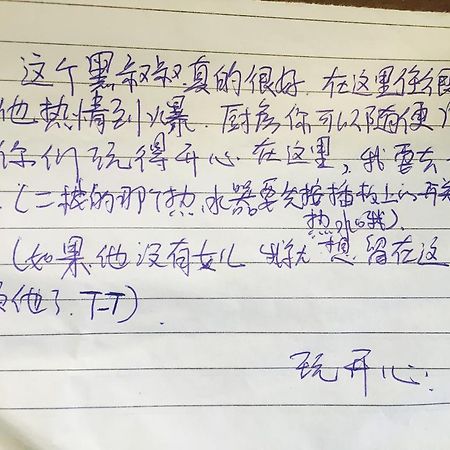 这个黑叔叔真的很好.在这里你很
他热情到火爆.厨房你可以随便
你们玩得开心在这里,我要去
.(二楼的那个热水器要先按插板上的再
热水哦).
(如果他没有女儿 我就想留在这
他了.T-T)
玩开心: